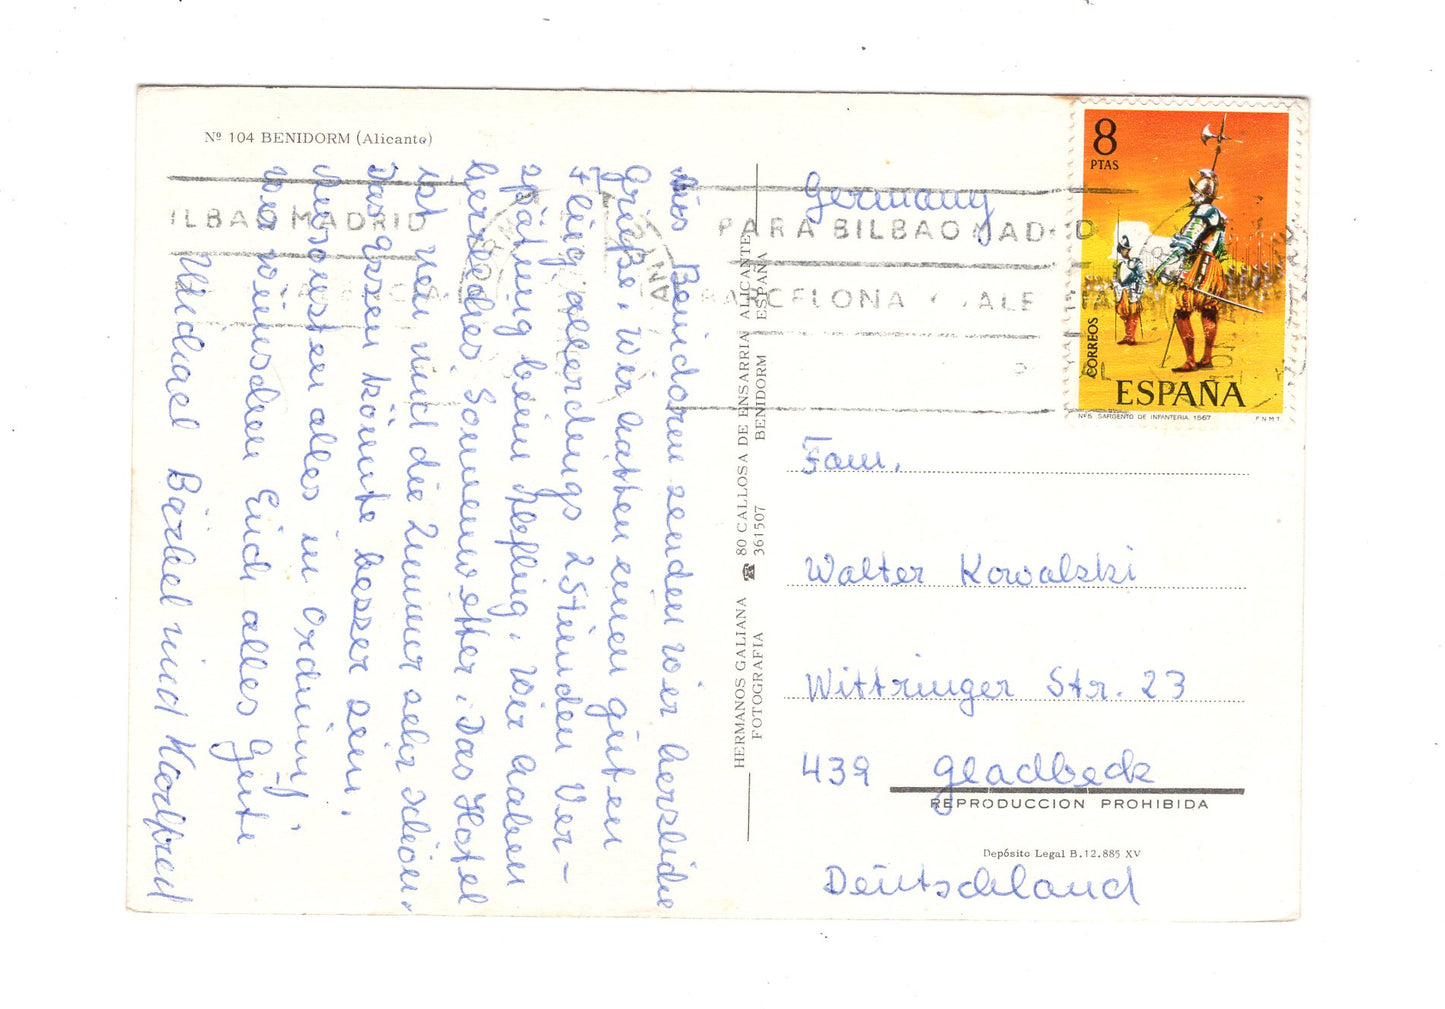 Nº 104 BENIDORM (Alicante)
Aus Benidorm senden wir herzliche
Grüße. Wir hatten einen guten
Flug allerdings 2 Stunden Ver-
spätung beim Abflug. Wir haben
herrliches Sonnenwetter. Das Hotel
ist neu und die Zimmer sehr schön.
Das Essen könnte besser sein.
Ansonsten alles in Ordnung.
Wir wünschen Euch alles Gute
Michael Bärbel und Karlfred
HERMANOS GALIANA ☎ 80 CALLOSA DE ENSARRIA ALICANTE
FOTOGRAFIA 361507 BENIDORM ESPAÑA
ILBAO MADRID
PARA BILBAO MADRID
BARCELONA VALENCIA
Germany
8
PTAS
CORREOS
ESPAÑA
Nº5 SARGENTO DE INFANTERIA. 1567
F.N.M.T.
Fam.
Walter Kowalski
Wittringer Str. 23
439 Gladbeck
REPRODUCCION PROHIBIDA
Depósito Legal B.12.885 XV
Deutschland